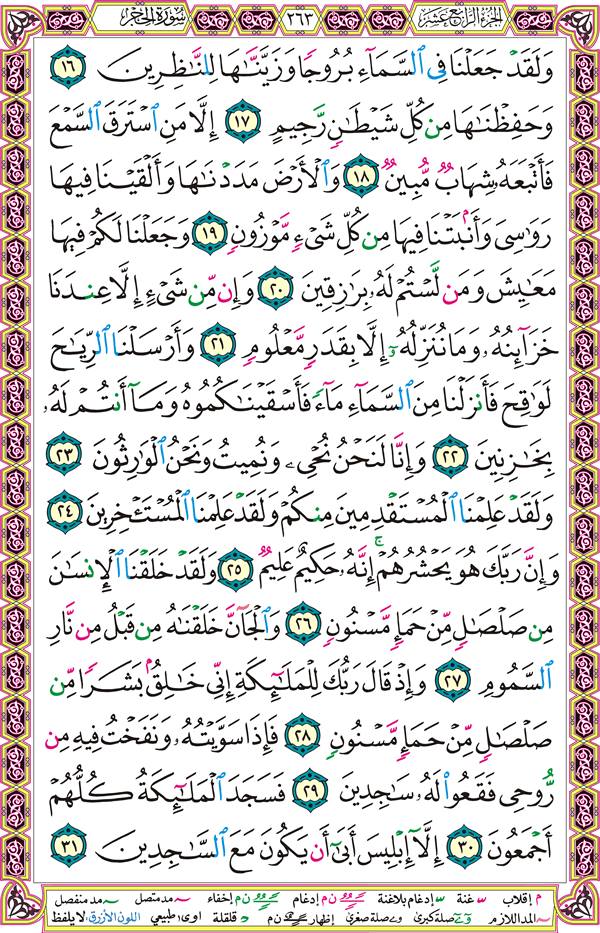 الجزء الرابع عشر ٢٦٣ سورة الحجر
وَلَقَدْ جَعَلْنَا فِى ٱلسَّمَآءِ بُرُوجًا وَزَيَّنَّٰهَا لِلنَّٰظِرِينَ ١٦
وَحَفِظْنَٰهَا مِن كُلِّ شَيْطَٰنٍ رَّجِيمٍ ١٧ إِلَّا مَنِ ٱسْتَرَقَ ٱلسَّمْعَ
فَأَتْبَعَهُۥ شِهَابٌ مُّبِينٌ ١٨ وَٱلْأَرْضَ مَدَدْنَٰهَا وَأَلْقَيْنَا فِيهَا
رَوَٰسِىَ وَأَنۢبَتْنَا فِيهَا مِن كُلِّ شَىْءٍ مَّوْزُونٍ ١٩ وَجَعَلْنَا لَكُمْ فِيهَا
مَعَٰيِشَ وَمَن لَّسْتُمْ لَهُۥ بِرَٰزِقِينَ ٢٠ وَإِن مِّن شَىْءٍ إِلَّا عِندَنَا
خَزَآئِنُهُۥ وَمَا نُنَزِّلُهُۥٓ إِلَّا بِقَدَرٍ مَّعْلُومٍ ٢١ وَأَرْسَلْنَا ٱلرِّيَٰحَ
لَوَٰقِحَ فَأَنزَلْنَا مِنَ ٱلسَّمَآءِ مَآءً فَأَسْقَيْنَٰكُمُوهُ وَمَآ أَنتُمْ لَهُۥ
بِخَٰزِنِينَ ٢٢ وَإِنَّا لَنَحْنُ نُحْىِۦ وَنُمِيتُ وَنَحْنُ ٱلْوَٰرِثُونَ ٢٣
وَلَقَدْ عَلِمْنَا ٱلْمُسْتَقْدِمِينَ مِنكُمْ وَلَقَدْ عَلِمْنَا ٱلْمُسْتَـْٔخِرِينَ ٢٤
وَإِنَّ رَبَّكَ هُوَ يَحْشُرُهُمْ ۚ إِنَّهُۥ حَكِيمٌ عَلِيمٌ ٢٥ وَلَقَدْ خَلَقْنَا ٱلْإِنسَٰنَ
مِن صَلْصَٰلٍ مِّنْ حَمَإٍ مَّسْنُونٍ ٢٦ وَٱلْجَآنَّ خَلَقْنَٰهُ مِن قَبْلُ مِن نَّارِ
ٱلسَّمُومِ ٢٧ وَإِذْ قَالَ رَبُّكَ لِلْمَلَٰٓئِكَةِ إِنِّى خَٰلِقٌۢ بَشَرًا مِّن
صَلْصَٰلٍ مِّنْ حَمَإٍ مَّسْنُونٍ ٢٨ فَإِذَا سَوَّيْتُهُۥ وَنَفَخْتُ فِيهِ مِن
رُّوحِى فَقَعُوا۟ لَهُۥ سَٰجِدِينَ ٢٩ فَسَجَدَ ٱلْمَلَٰٓئِكَةُ كُلُّهُمْ
أَجْمَعُونَ ٣٠ إِلَّآ إِبْلِيسَ أَبَىٰٓ أَن يَكُونَ مَعَ ٱلسَّٰجِدِينَ ٣١
م إقلاب غنة إدغام بلاغنة ن م إدغام ن م إخفاء مد متصل مد منفصل
المد اللازم صلة كبرى صلة صغرى إظهار ن م قلقلة اوى طبيعي اللون الأزرق لا يلفظ